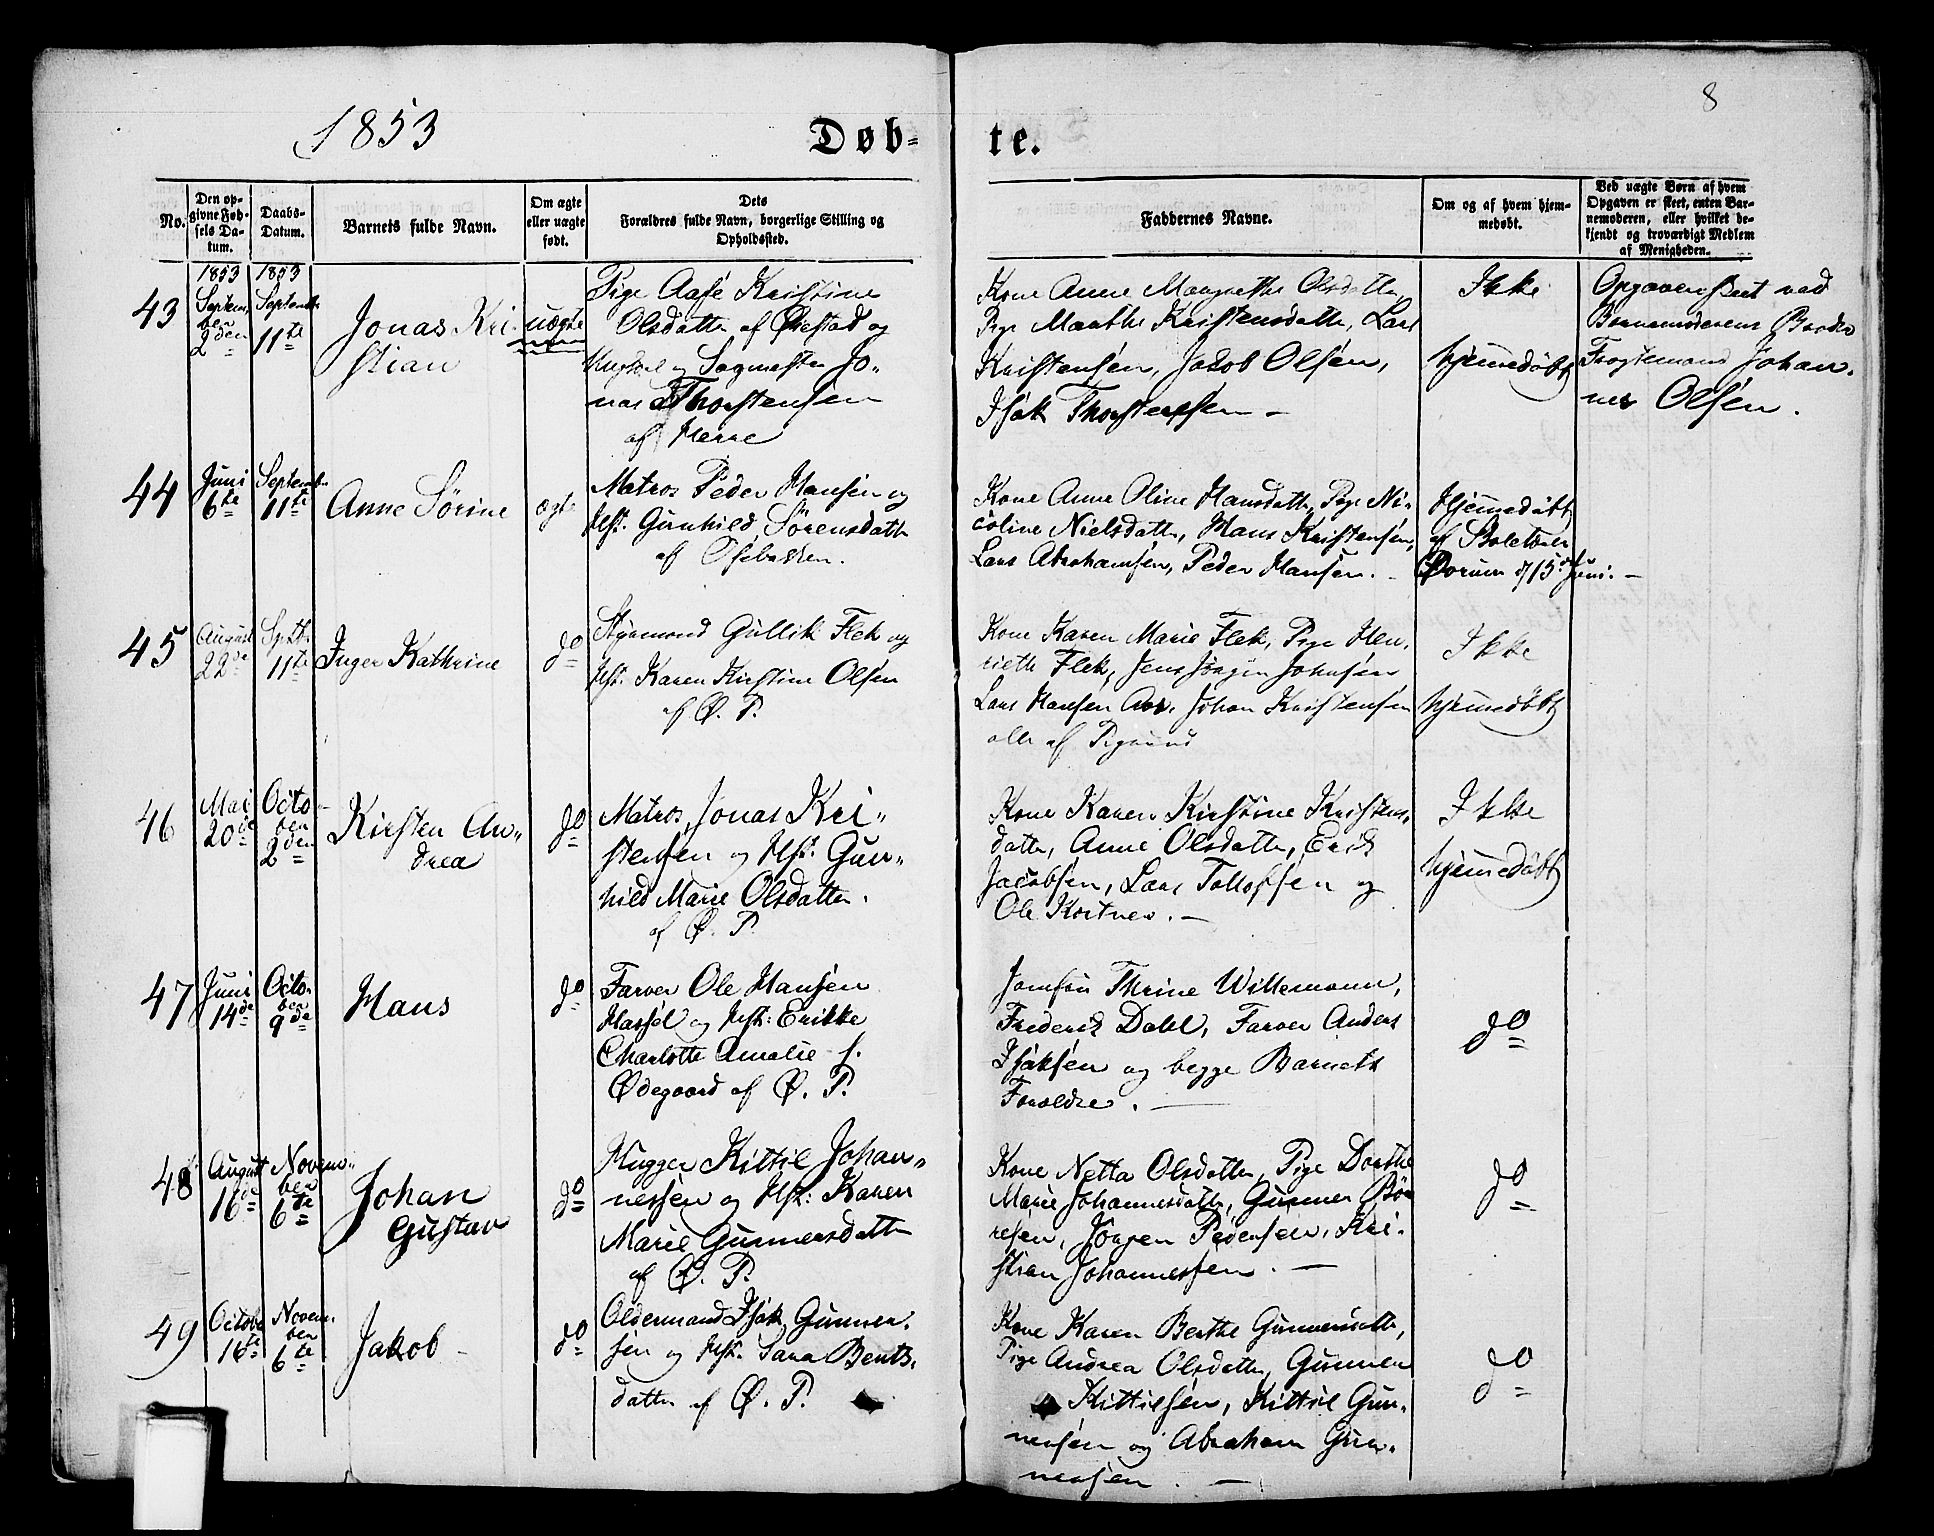 1853
Døb-
te.
8
No.
Den op-
givne Fød-
sels Da-
tum.
Daabs-
Datum.
Barnets fulde Navn.
Om ægte
eller uægte
født.
Dets
Forældres fulde Navn, borgerlige Stilling og
Opholdssted.
Faddernes Navne.
Om og af hvem hjem-
medøbt.
Ved uægte Børn af hvem
Opgaven er skeet, enten Bar-
nemoderen, eller hvilket be-
kjendt og troværdigt Medlem
af Menigheden.
43
1853
Septem
ber
2den
1853
Septemb
11te
Jonas Kri-
stian
uægte
Pige Aase Kristine
Olsdatter af Øiestad og
Ungkarl og Sagmester Jo-
nas Thorstensen
af Herre
Kone Anne Margrethe Olsdatter,
Pige Marthe Kristensdatter, Lars
Kristensen, Jakob Olsen,
Isak Thorstensen -
Ikke
hjemmedöbt
Opgaven skeet ved
Barnemoderens Broder
Fragtemand Johan-
nes Olsen.
44
Juni
6te
Septemb
11te
Anne Sörine
ægte
Matros Peder Hansen og
Hst. Gunhild Sörensdatter
af Osebakken.
Kone Anne Oline Hansdatter, Pige Ni-
coline Nielsdatter, Hans Kristensen,
Lars Abrahamsen, Peder Hansen. -
Hjemmedöbt
af Skoletær
Borum d 15de Juni. -
45
August
22de
Septb.
11te
Inger Kathrine
do
Styrmand Gullik Flek og
Hst. Karen Kirstine Olsen
af Ø. P.
Kone Karen Marie Flek, Pige Hen-
riette Flek, Jens Jörgen Johnsen
Lars Hansen Aas, Johan Kristensen
alle af Pigsund
Ikke
hjemmedöbt
46
Mai
20de
Octo-
ber
2den
Kirsten An-
drea
do
Matros, Jonas Kri-
stensen og Hst: Gun-
hild Marie Olsdatter.
af Ø. P.
Kone Karen Kirstine Kristens-
datter, Anne Olsdatter, Erik
Jacobsen, Lars Tollofsen og
Ole Kortner. -
Ikke
hjemmedöbt
47
Juni
14de
Octo-
ber
9de
Hans
do
Farver Ole Hansen
Hassel og Hst: Erikke
Charlotte Amalie f.
Ødegaard af Ø. P.
Jomfru Thrine Willemann,
Frederik Dahl, Farver Anders
Isaksen og begge Barnets
Forældre. -
do
48
August
16de
Novem-
ber
6te
Johan
Gustav
do
Hugger Kittil Johan-
nessen og Hst: Karen
Marie Gunnersdatter
af Ø. P.
Kone Netta Olsdatter, Pige Dorthe
Marie Johannesdatter, Gunner Bör
resen, Jörgen Pedersen, Kri-
stian Johannessen. -
do
49
Octobe
16te
Novem-
ber
6te
Jakob -
do
Oldermand Isak Gunner-
sen og Hst. Sara Bents-
datter af Ø. P.
Kone Karen Berthe Gunnersdatter,
Pige Andrea Olsdatter, Gunner
Kittilsen, Kittil Gun-
nersen og Abraham Gun-
nersen. -
do